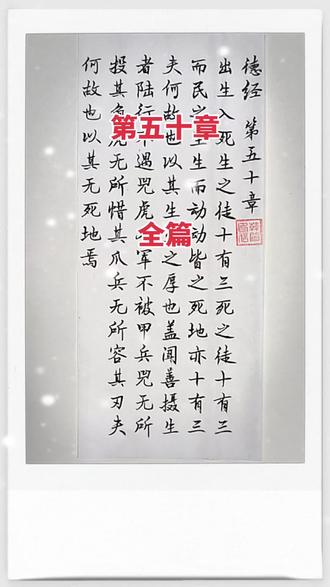 第五十章
全篇
德经 第五十章
出生入死生之徒十有三死之徒十有三
而民之生生而动动皆之死地亦十有三
夫何故也以其生生之厚也盖闻善摄生
者陆行不遇兕虎入军不被甲兵兕无所
投其角虎无所惜其爪兵无所容其刃夫
何故也以其无死地焉